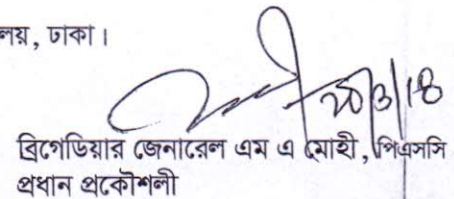 লয়, ঢাকা।
২০/3/18
ব্রিগেডিয়ার জেনারেল এম এ মোহী, পিএসসি
প্রধান প্রকৌশলী